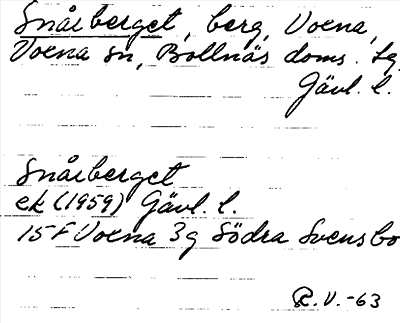 Snårberget, berg, Voxna,
Voxna sn, Bollnäs doms. tg,
Gävl. l.
Snårberget
ek (1959) Gävl. l.
15F Voxna 3g Södra Svensbo
R.V.-63